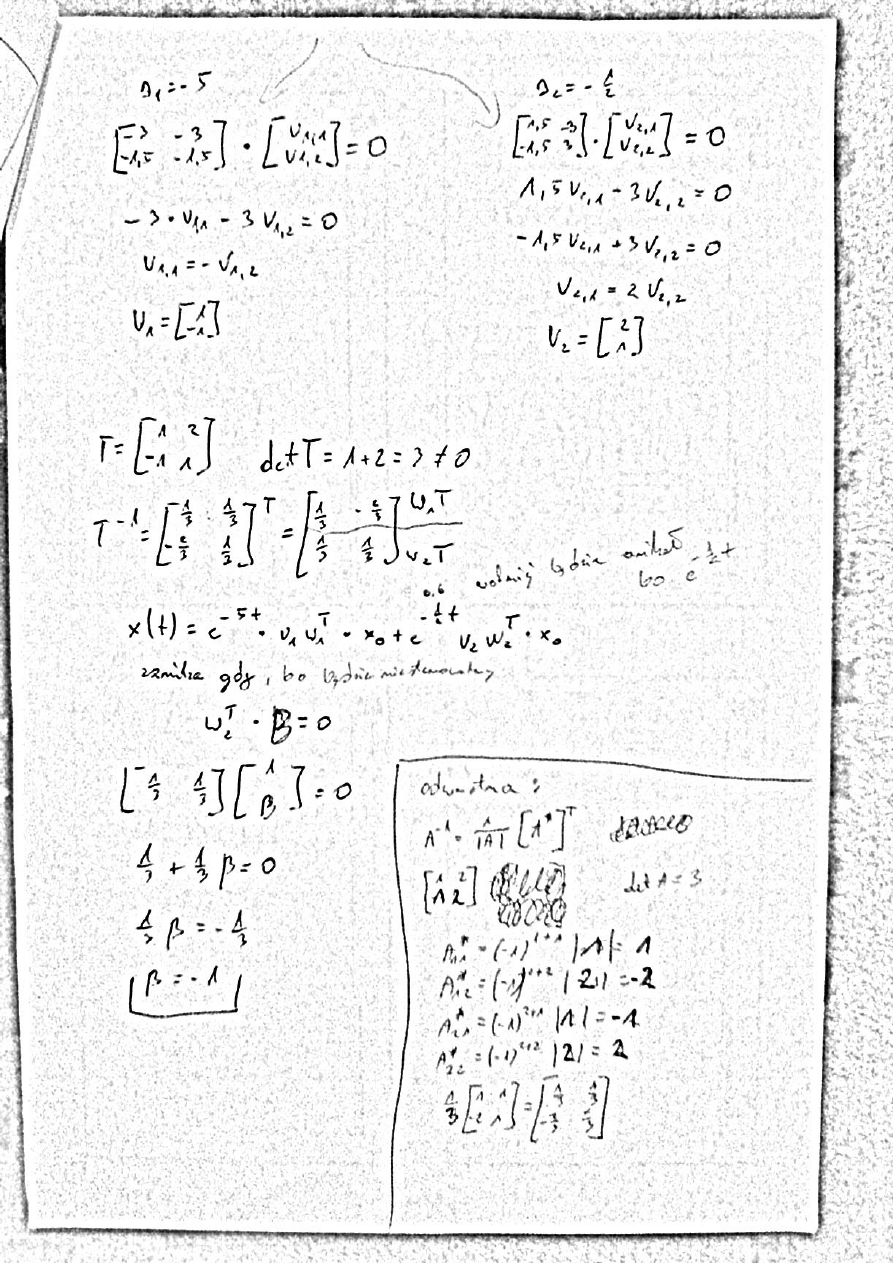 s₁ = -5
[-3 -3; -1,5 -1,5] · [V₁,₁; V₁,₂] = 0
-3 · V₁,₁ - 3 V₁,₂ = 0
V₁,₁ = - V₁,₂
V₁ = [1; -1]
s₂ = - 1/2
[1,5 -3; -1,5 3] · [V₂,₁; V₂,₂] = 0
1,5 V₂,₁ - 3 V₂,₂ = 0
-1,5 V₂,₁ + 3 V₂,₂ = 0
V₂,₁ = 2 V₂,₂
V₂ = [2; 1]
T = [1 2; -1 1] det T = 1+2 = 3 ≠ 0
T⁻¹ = [1/3 1/3; -2/3 1/3]ᵀ = [1/3 -2/3; 1/3 1/3] W₁ᵀ
będzie
bo e^(-1/2 t)
x(t) = e^(-5t) · v₁ w₁ᵀ · x₀ + e^(-1/2 t) v₂ w₂ᵀ · x₀
gdy, bo będzie
w₂ᵀ · B = 0
[1/3 1/3] [1; β] = 0
1/3 + 1/3 β = 0
1/3 β = - 1/3
β = - 1
odwrotna :
A⁻¹ = 1/|A| [A*]ᵀ
[1 2; 1 2] det A = 3
A₁₁* = (-1)¹⁺¹ |1| = 1
A₁₂* = (-1)¹⁺² |2| = -2
A₂₁* = (-1)²⁺¹ |1| = -1
A₂₂* = (-1)²⁺² |2| = 2
1/3 [1 1; -2 1] = [1/3 1/3; -2/3 1/3]